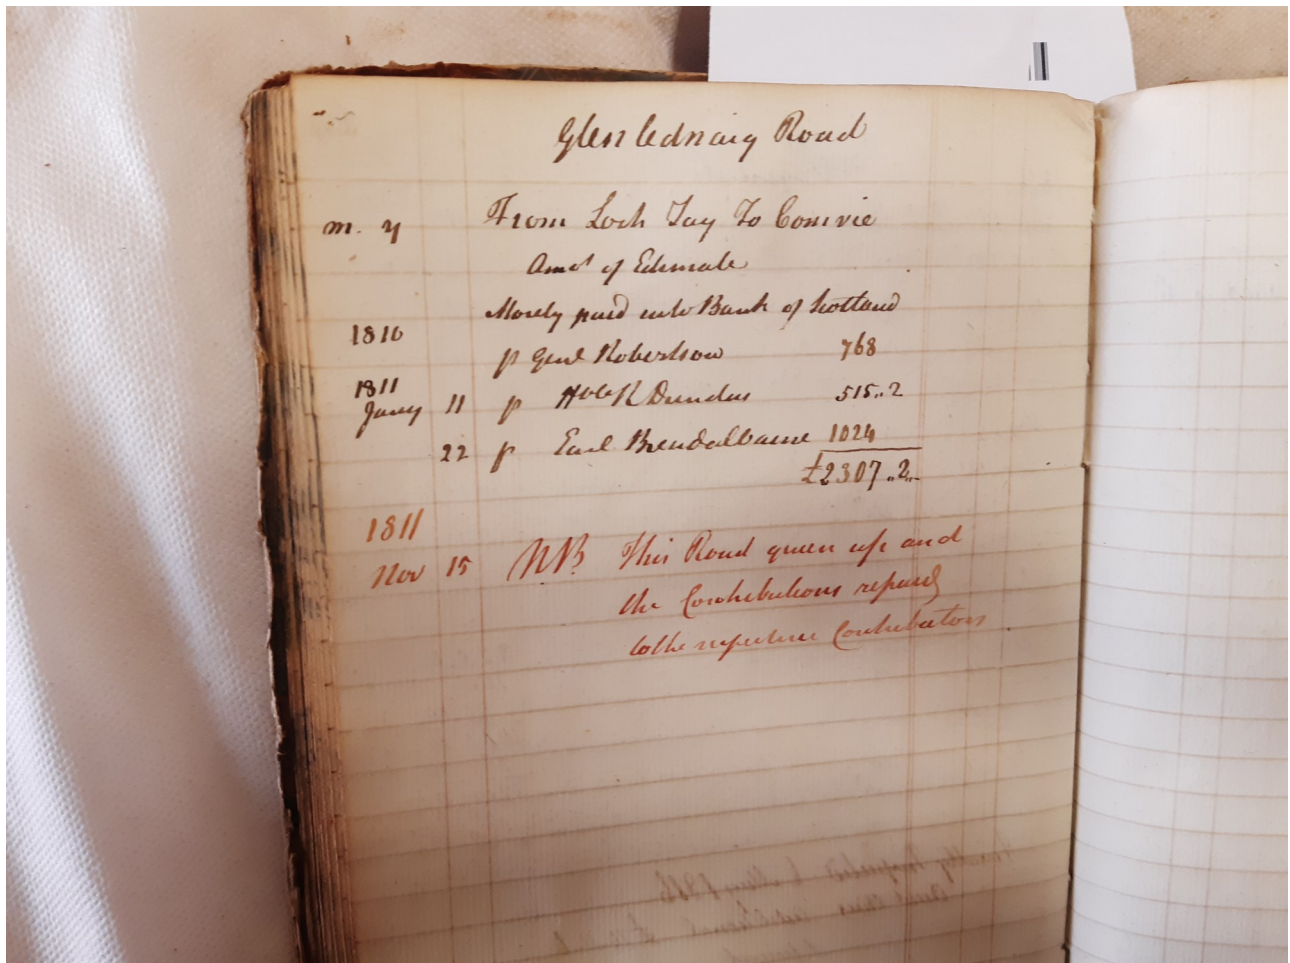 Glenlednaig Road
m. y From Loch Tay To Comrie
Amot of Estimate
Money paid into Bank of Scotland
1810
p Genl Robertson 768
1811
Jany 11 p Dundas 515,,2
22 p Earl Breadalbane 1024
£2307,,2,,
1811
Nov 15 NB. This Road given up and
the Contributions repaid
to the respective Contributors